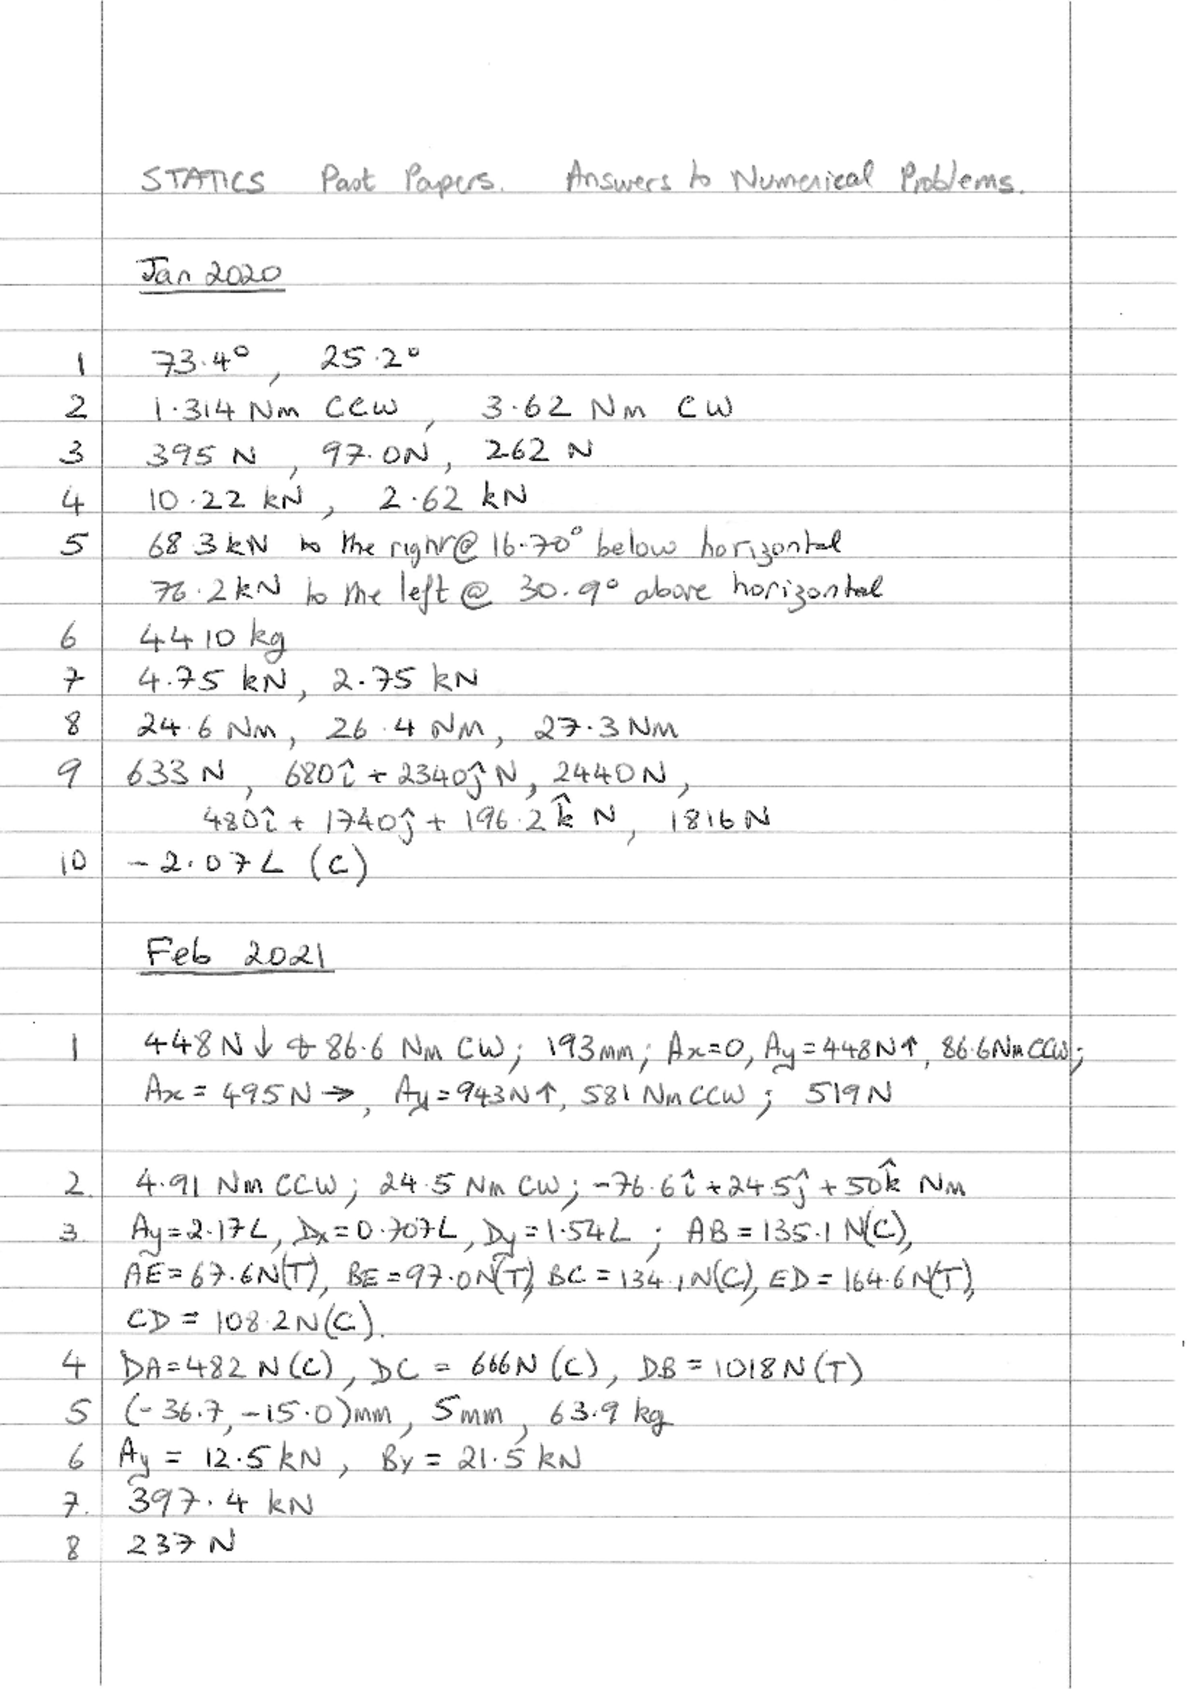 STATICS Past Papers. Answers to Numerical Problems.
Jan 2020
1 73.4°, 25.2°
2 1.314 Nm CCW, 3.62 Nm CW
3 395 N, 97.0N, 262 N
4 10.22 kN, 2.62 kN
5 68.3 kN to the right @ 16.70° below horizontal
76.2 kN to the left @ 30.9° above horizontal
6 4410 kg
7 4.75 kN, 2.75 kN
8 24.6 Nm, 26.4 Nm, 27.3 Nm
9 633 N, 680î + 2340ĵ N, 2440 N,
480î + 1740ĵ + 196.2k̂ N, 1816 N
10 -2.07L (C)
Feb 2021
1 448N↓ & 86.6 Nm CW; 193mm; Ax=0, Ay=448N↑, 86.6Nm CCW;
Ax = 495N→, Ay=943N↑, 581 Nm CCW; 519N
2. 4.91 Nm CCW; 24.5 Nm CW; -76.6î + 24.5ĵ + 50k̂ Nm
3. Ay=2.17L, Dx=0.707L, Dy=1.54L; AB = 135.1 N(C),
AE=67.6N(T), BE=97.0N(T), BC = 134.1N(C), ED = 164.6N(T),
CD = 108.2N(C).
4 DA=482 N (C), DC = 666N (C), DB = 1018N (T)
5 (-36.7, -15.0)mm, 5mm, 63.9 kg
6 Ay = 12.5 kN, By = 21.5 kN
7. 397.4 kN
8 237 N